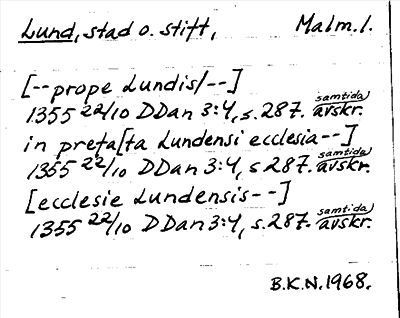 Lund, stad o. stift, Malm. l.
[--prope Lundis/--]
1355 22/10 DDan 3:4, s. 287. samtida avskr.
in prefa[ta Lundensi ecclesia--]
1355 22/10 DDan 3:4, s 287. samtida avskr.
[ecclesie Lundensis--]
1355 22/10 DDan 3:4, s. 287. samtida avskr.
B.K.N. 1968.